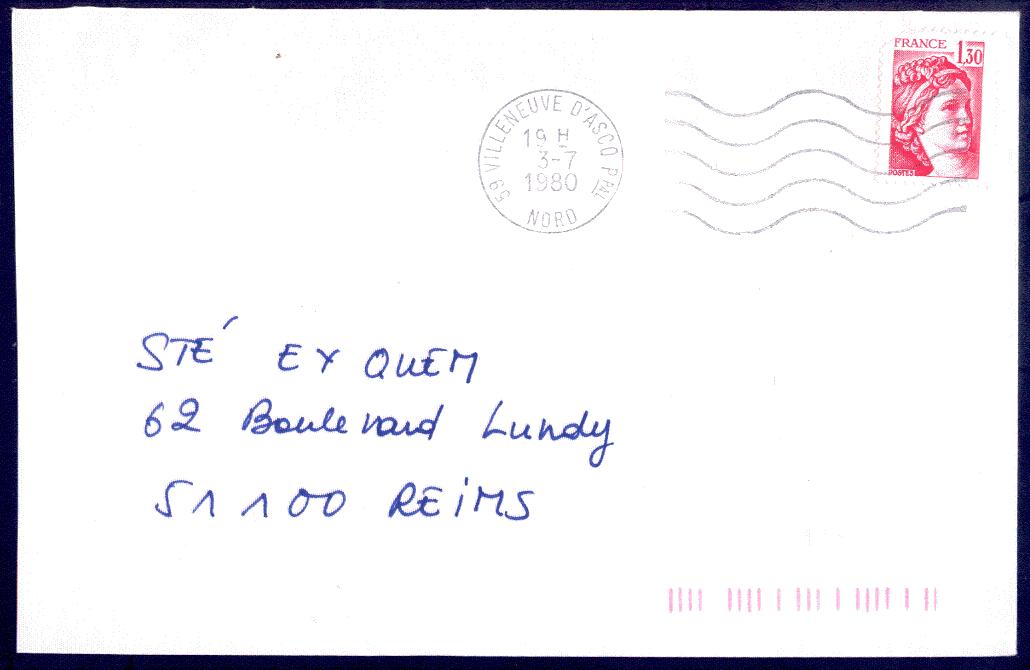 FRANCE 1,30
POSTES
59 VILLENEUVE D'ASCQ PPAL
19 H
3-7
1980
NORD
STÉ EYQUEM
62 Boulevard Lundy
51100 REIMS